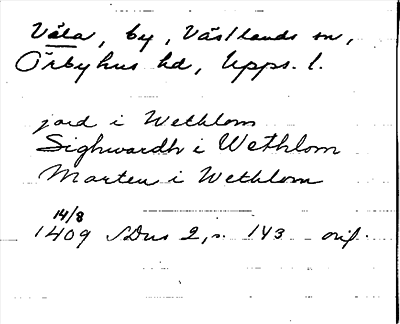 Våla, by, Västlands sn,
Örbyhus hd, Upps. l.
jord i Wethlom
Sighwardh i Wethlom
Marten i Wethlom
14/8
1409 SDns 2, s. 143 orig.